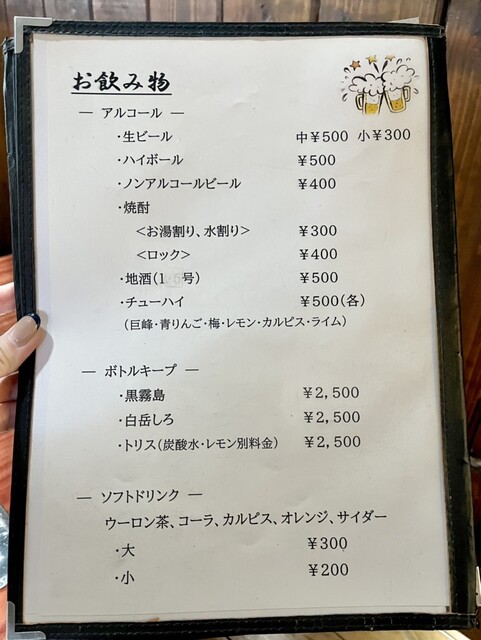 お飲み物
― アルコール ―
・生ビール 中¥500 小¥300
・ハイボール ¥500
・ノンアルコールビール ¥400
・焼酎
<お湯割り、水割り> ¥300
<ロック> ¥400
・地酒(1 号) ¥500
・チューハイ ¥500(各)
(巨峰・青りんご・梅・レモン・カルピス・ライム)
― ボトルキープ ―
・黒霧島 ¥2,500
・白岳しろ ¥2,500
・トリス(炭酸水・レモン別料金) ¥2,500
― ソフトドリンク ―
ウーロン茶、コーラ、カルピス、オレンジ、サイダー
・大 ¥300
・小 ¥200